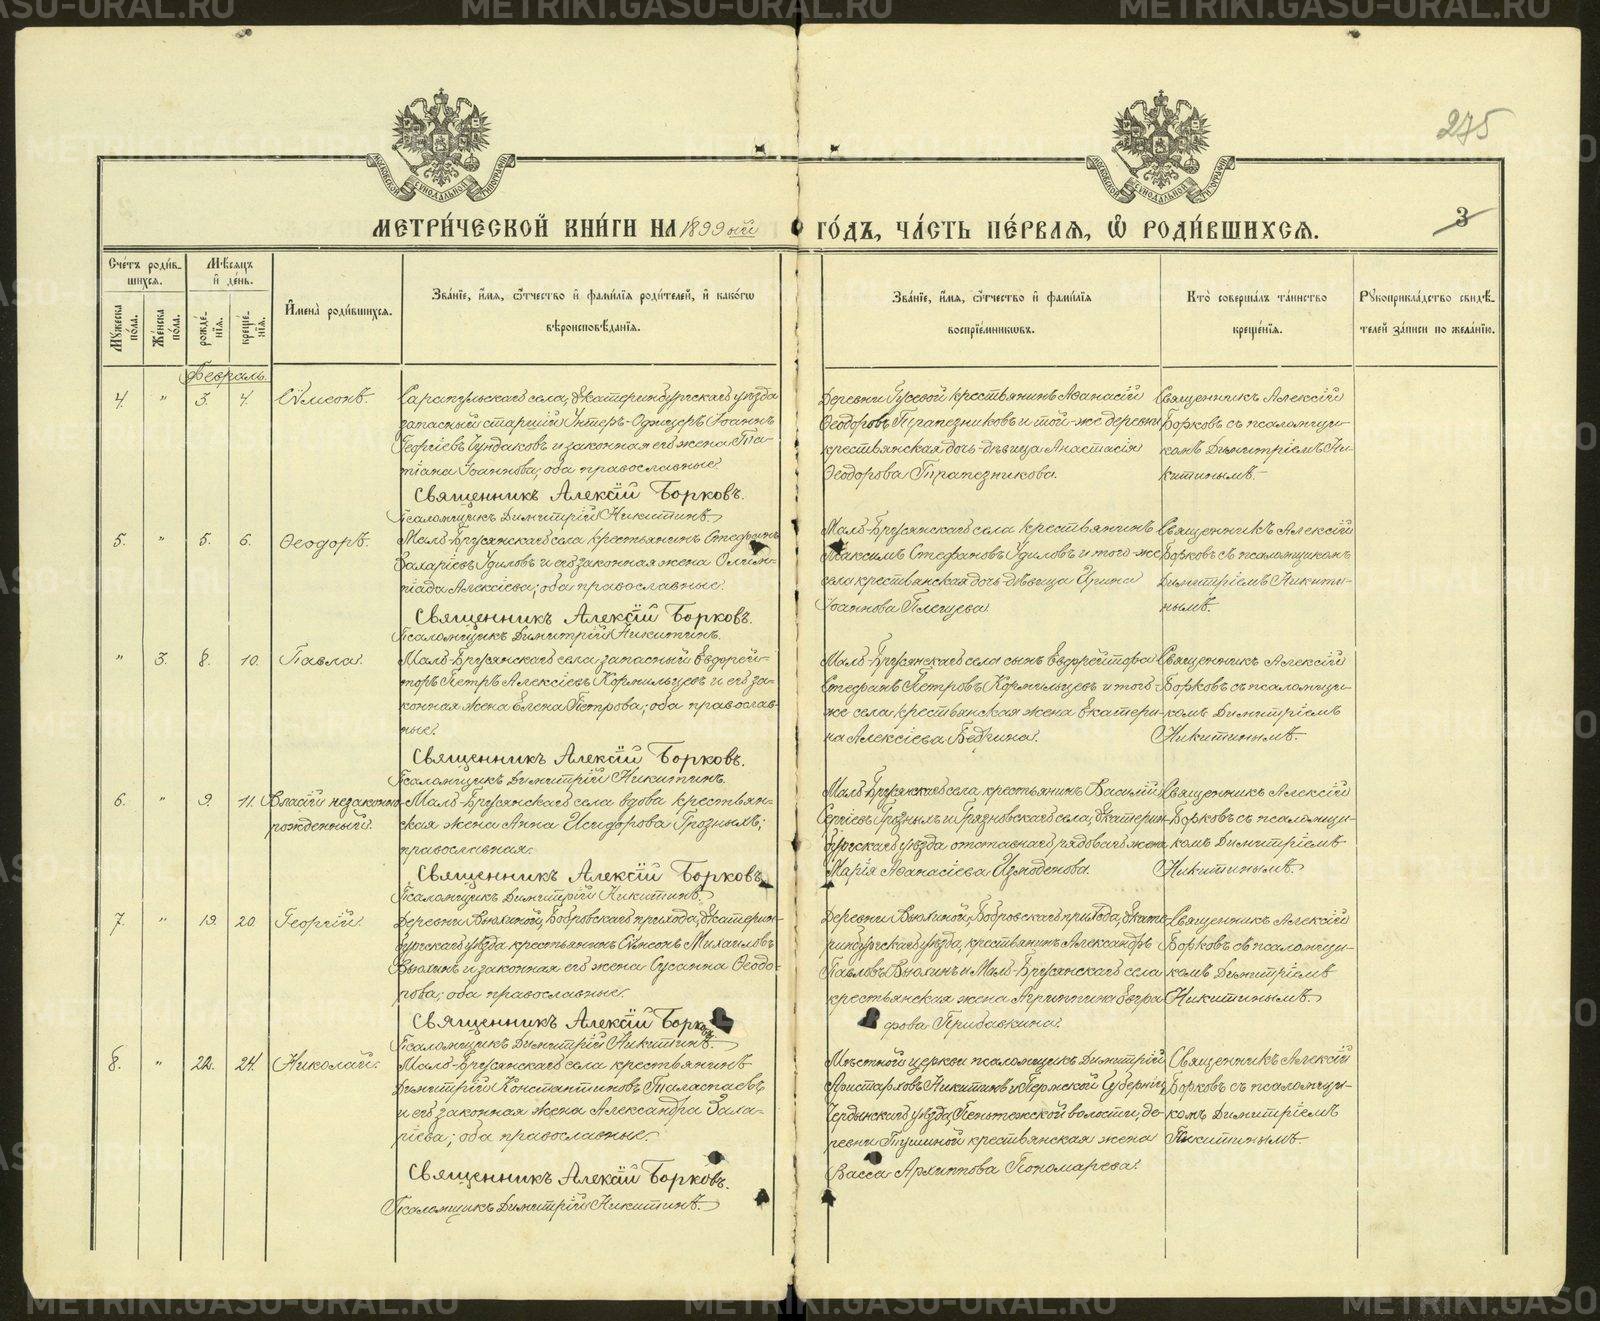 275
МЕТРИ́ЧЕСКОЙ КНИ́ГИ НА 1899 ый ГО́ДЪ, ЧА́СТЬ ПЕ́РВАЯ, Ѽ РОДИ́ВШИХСЯ.
3
Сче́тъ роди́в-
шихся.
Мꙋ́жеска по́ла.
Же́нска по́ла.
Мѣ́сяцъ и де́нь.
рожде́-
нїя.
креще́-
нїя.
И҆мена̀ роди́вшихся.
Зва́нїе, и҆́мя, ѻ҆́тчество и҆ фами́лїя роди́телей, и҆ како́гѡ
вѣроисповѣ́данїя.
Зва́нїе, и҆́мя, ѻ҆́тчество и҆ фами́лїя
воспрїе́мниковъ.
Кто̀ соверша́лъ та́инство
креще́нїя.
Рꙋкоприкла́дство свидѣ́-
телей за́писи по жела́нїю.
Февраль
4. " 3. 4. Сѵмеонъ.
Сарапульскаго села, Екатеринбургскаго уѣзда
запасный старшій Унтеръ-Офицеръ Іоаннъ
Георгіевъ Чундаковъ и законная его жена Та-
тіана Іоаннова; оба православные.
Священникъ Алексій Борковъ.
Псаломщикъ Димитрій Никитинъ.
Деревни Гусевой крестьянинъ Аѳанасій
Ѳеодоровъ Трапезниковъ и той-же деревни
крестьянская дочь-дѣвица Анастасія
Ѳеодорова Трапезникова.
Священникъ Алексій
Борковъ съ псаломщи-
комъ Димитріемъ Ни-
китинымъ.
5. " 5. 6. Ѳеодоръ.
Мало-Брусянскаго села крестьянинъ Стефанъ
Захаріевъ Удиловъ и его законная жена Олим-
піада Алексіева; оба православные.
Священникъ Алексій Борковъ.
Псаломщикъ Димитрій Никитинъ.
Мало-Брусянскаго села крестьянинъ
Максимъ Стефановъ Удиловъ и того-же
села крестьянская дочь-дѣвица Ирина
Іоаннова Плещева.
Священникъ Алексій
Борковъ съ псаломщикомъ
Димитріемъ Никити-
нымъ.
" 3. 8. 10. Павла.
Мало-Брусянскаго села запасный Ефрей-
торъ Петръ Алексіевъ Кормильцевъ и его за-
конная жена Елена Петрова; оба православ-
ные.
Священникъ Алексій Борковъ.
Псаломщикъ Димитрій Никитинъ.
Мало-Брусянскаго села сынъ Ефрейтора
Стефанъ Петровъ Кормильцевъ и того-
же села крестьянская жена Екатери-
на Алексіева
Священникъ Алексій
Борковъ съ псаломщи-
комъ Димитріемъ
Никитинымъ.
6. " 9. 11. Власій незаконно-
рожденный.
Мало-Брусянскаго села вдова крестьян-
ская жена Анна Исидорова Грозныхъ;
православная.
Священникъ Алексій Борковъ
Псаломщикъ Димитрій Никитинъ.
Мало-Брусянскаго села крестьянинъ Василій
Сергіевъ Грозныхъ и Грязновскаго села, Екатерин-
бургскаго уѣзда отставнаго рядоваго жена
Марія Аѳанасіева Измоденова.
Священникъ Алексій
Борковъ съ псаломщи-
комъ Димитріемъ
Никитинымъ.
7. " 19. 20. Георгій.
Деревни Вьюхиной, Бобровскаго прихода, Екатерин-
бургскаго уѣзда, крестьянинъ Сѵмеонъ Михаиловъ
Вьюхинъ и законная его жена Сусанна Ѳеодо-
рова; оба православные.
Священникъ Алексій Борковъ
Псаломщикъ Димитрій Никитинъ.
Деревни Вьюхиной, Бобровскаго прихода, Екате-
ринбургскаго уѣзда, крестьянинъ Александръ
Павловъ Вьюхинъ и Мало-Брусянскаго села
крестьянская жена Агриппина Евгра
фова Прибавкина.
Священникъ Алексій
Борковъ съ псаломщи-
комъ Димитріемъ
Никитинымъ.
8. " 22. 24. Николай.
Мало-Брусянскаго села крестьянинъ
Димитрій Константиновъ Таласпаевъ
и его законная жена Александра Заха-
ріева; оба православные.
Священникъ Алексій Борковъ.
Псаломщикъ Димитрій Никитинъ.
Мѣстной церкви псаломщикъ Димитрій
Аристарховъ Никитинъ и Пермской Губерніи,
Чердынскаго уѣзда, волости, де-
ревни крестьянская жена
Васса Архиппова Пономарева.
Священникъ Алексій
Борковъ съ псаломщи-
комъ Димитріемъ
Никитинымъ.
METRIKI.GASU-URAL.RU